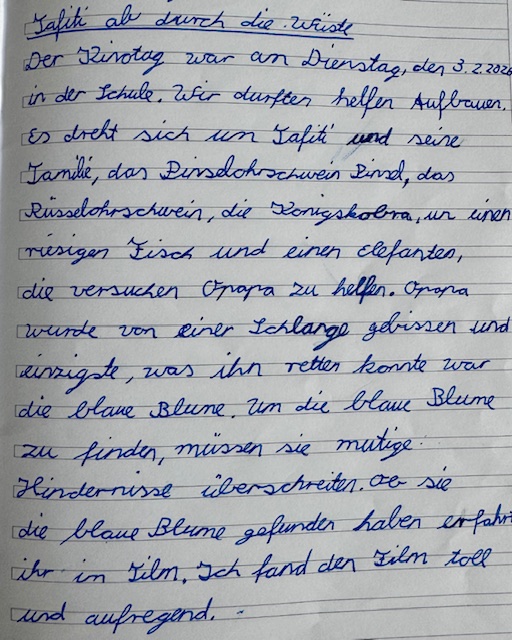 Tafiti ab durch die Wüste
Der Kinotag war am Dienstag, den 3.2.2026
in der Schule. Wir durften helfen Aufbauen.
Es dreht sich um Tafiti und seine
Familie, das Pinselohrschwein Pinsel, das
Rüsselohrschwein, die Königskobra, um einen
riesigen Fisch und einen Elefanten,
die versuchen Opapa zu helfen. Opapa
wurde von einer Schlange gebissen und
einzigste, was ihn retten konnte war
die blaue Blume. Um die blaue Blume
zu finden, müssen sie mutige
Hindernisse überschreiten. Ob sie
die blaue Blume gefunden haben erfahrt
ihr in Film. Ich fand den Film toll
und aufregend.